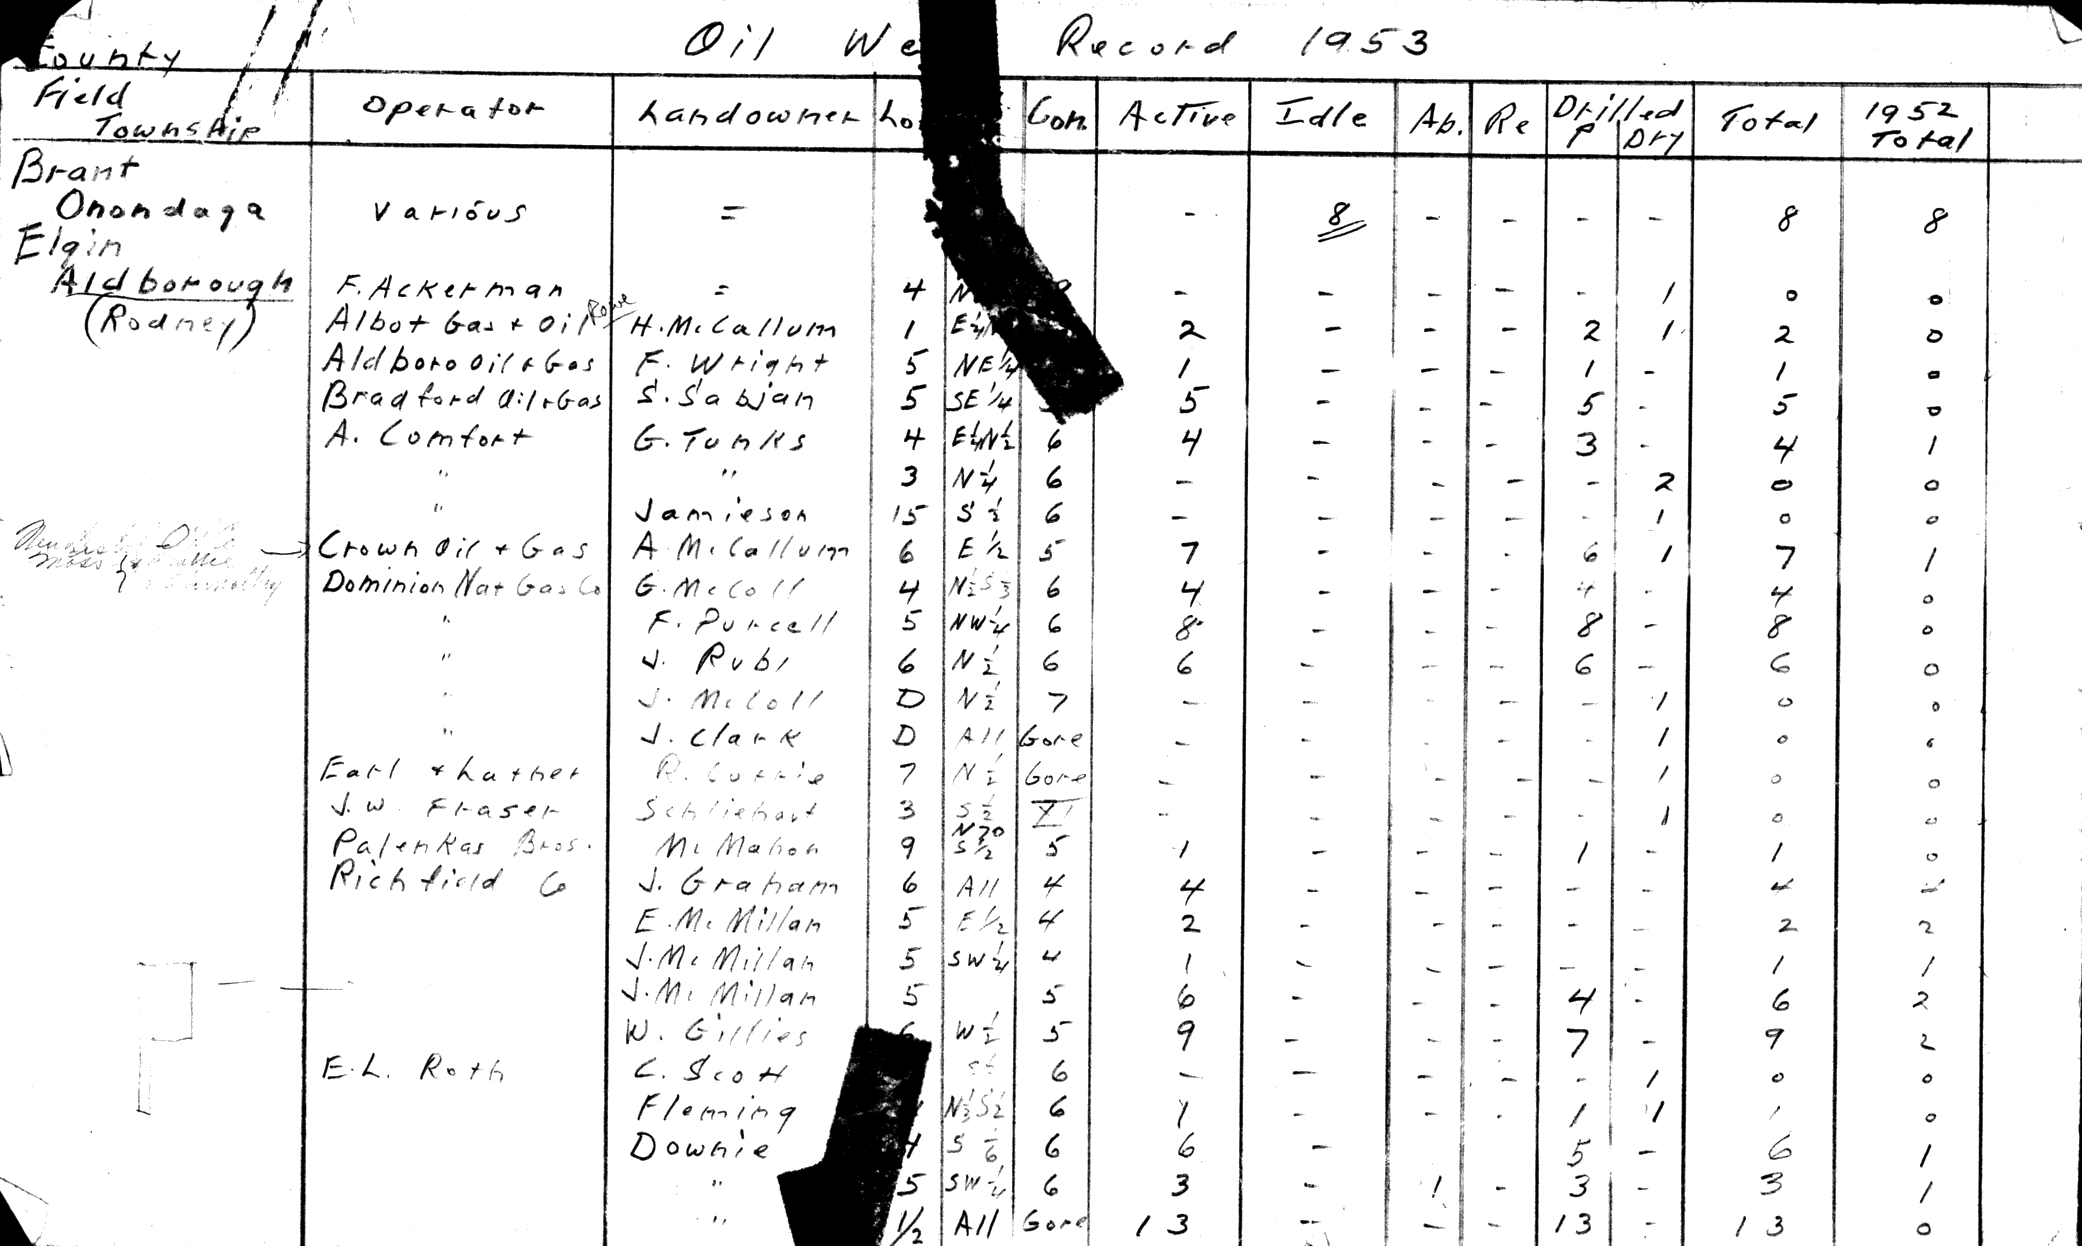 Oil We Record 1953
County
Field
Township Operator Landowner Lo Con. Active Idle Ab. Re Drilled P Dry Total 1952 Total
Brant
Onondaga Various = - 8 - - - - 8 8
Elgin
Aldborough F. Ackerman = 4 N - - - - - 1 0 0
(Rodney) Albot Gas + Oil Rowe H. McCallum 1 E¼ 2 - - - 2 1 2 0
Aldboro Oil & Gas F. Wright 5 NE¼ 1 - - - 1 - 1 0
Bradford Oil & Gas S. Sabjan 5 SE¼ 5 - - - 5 - 5 0
A. Comfort G. Tunks 4 E¼N½ 6 4 - - - 3 - 4 1
" " 3 N¼ 6 - - - - - 2 0 0
" Jamieson 15 S½ 6 - - - - - 1 0 0
Crown Oil + Gas A McCallum 6 E½ 5 7 - - - 6 1 7 1
Dominion Nat Gas Co G. McColl 4 N½S⅔ 6 4 - - - 4 - 4 0
" F. Purcell 5 NW¼ 6 8 - - - 8 - 8 0
" J. Rubi 6 N½ 6 6 - - - 6 - 6 0
" J. McColl D N½ 7 - - - - - 1 0 0
" J. Clark D All Gore - - - - - 1 0 0
Earl + Luther R. Currie 7 N½ Gore - - - - - 1 0 0
J. W. Fraser Schliehauf 3 S½ XI - - - - - 1 0 0
Palenkas Bros. McMahon 9 N70 S½ 5 1 - - - 1 - 1 0
Richfield Co J. Graham 6 All 4 4 - - - - - 4 4
E. McMillan 5 E½ 4 2 - - - - - 2 2
J. McMillan 5 SW¼ 4 1 - - - - - 1 1
J. McMillan 5 5 6 - - - 4 - 6 2
W. Gillies W½ 5 9 - - - 7 - 9 2
E. L. Roth C. Scott 6 - - - - - 1 0 0
Fleming N⅓S½ 6 1 - - - 1 1 1 0
Downie 4 S⅙ 6 6 - - - 5 - 6 1
" 5 SW¼ 6 3 - 1 - 3 - 3 1
" ½ All Gore 13 - - - 13 - 13 0